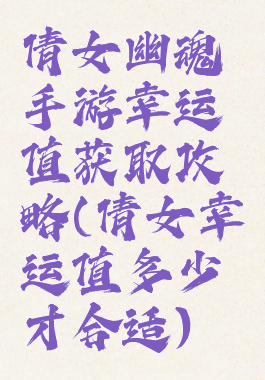 倩女幽魂
手游幸运
值获取攻
略(倩女幸
运值多少
才合适)